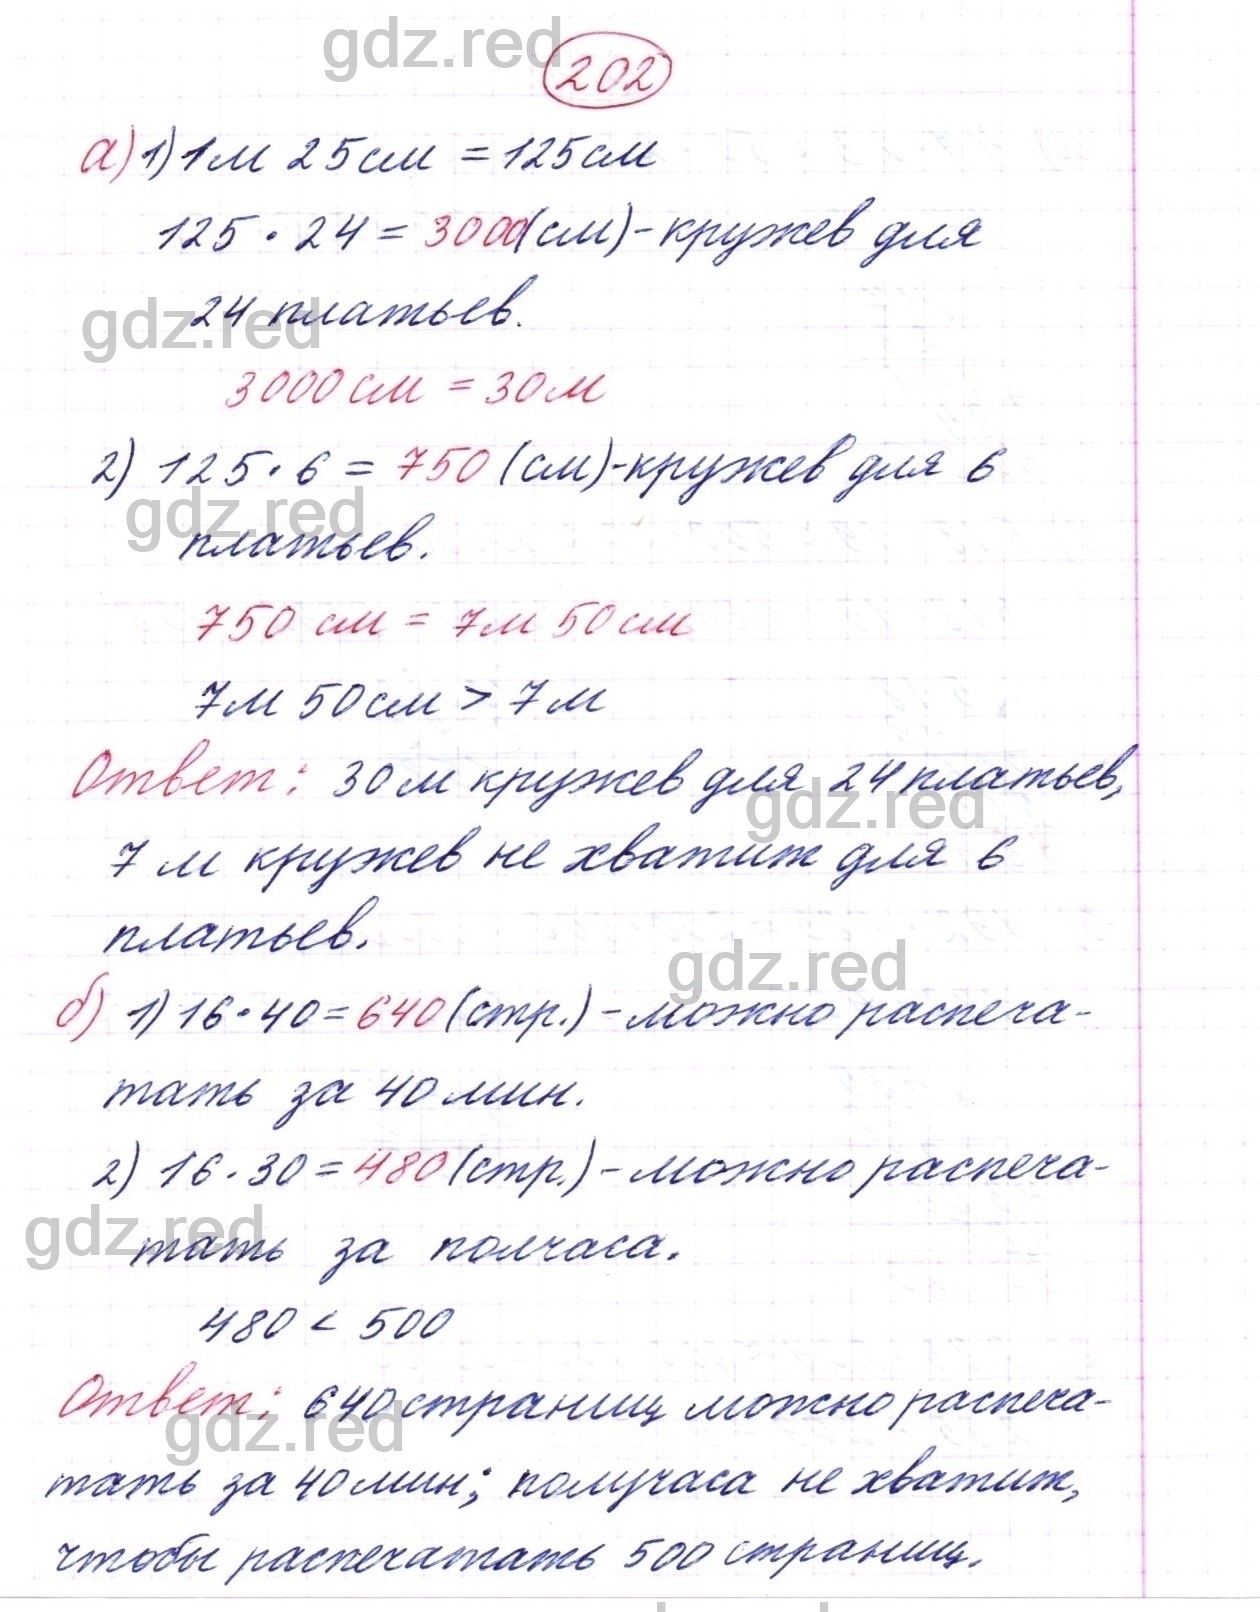 gdz.red
202
а) 1) 1 м 25 см = 125 см
125 · 24 = 3000 (см) - кружев для
24 платьев.
gdz.red
3000 см = 30 м
2) 125 · 6 = 750 (см) - кружев для 6
gdz.red
платьев.
750 см = 7 м 50 см
7 м 50 см > 7 м
Ответ: 30 м кружев для 24 платьев,
gdz.red
7 м кружев не хватит для 6
платьев.
gdz.red
б) 1) 16 · 40 = 640 (стр.) - можно распеча-
тать за 40 мин.
2) 16 · 30 = 480 (стр.) - можно распеча-
gdz.red
тать за полчаса.
480 < 500
Ответ: 640 страниц можно распеча-
gdz.red
тать за 40 мин; получаса не хватит,
чтобы распечатать 500 страниц.